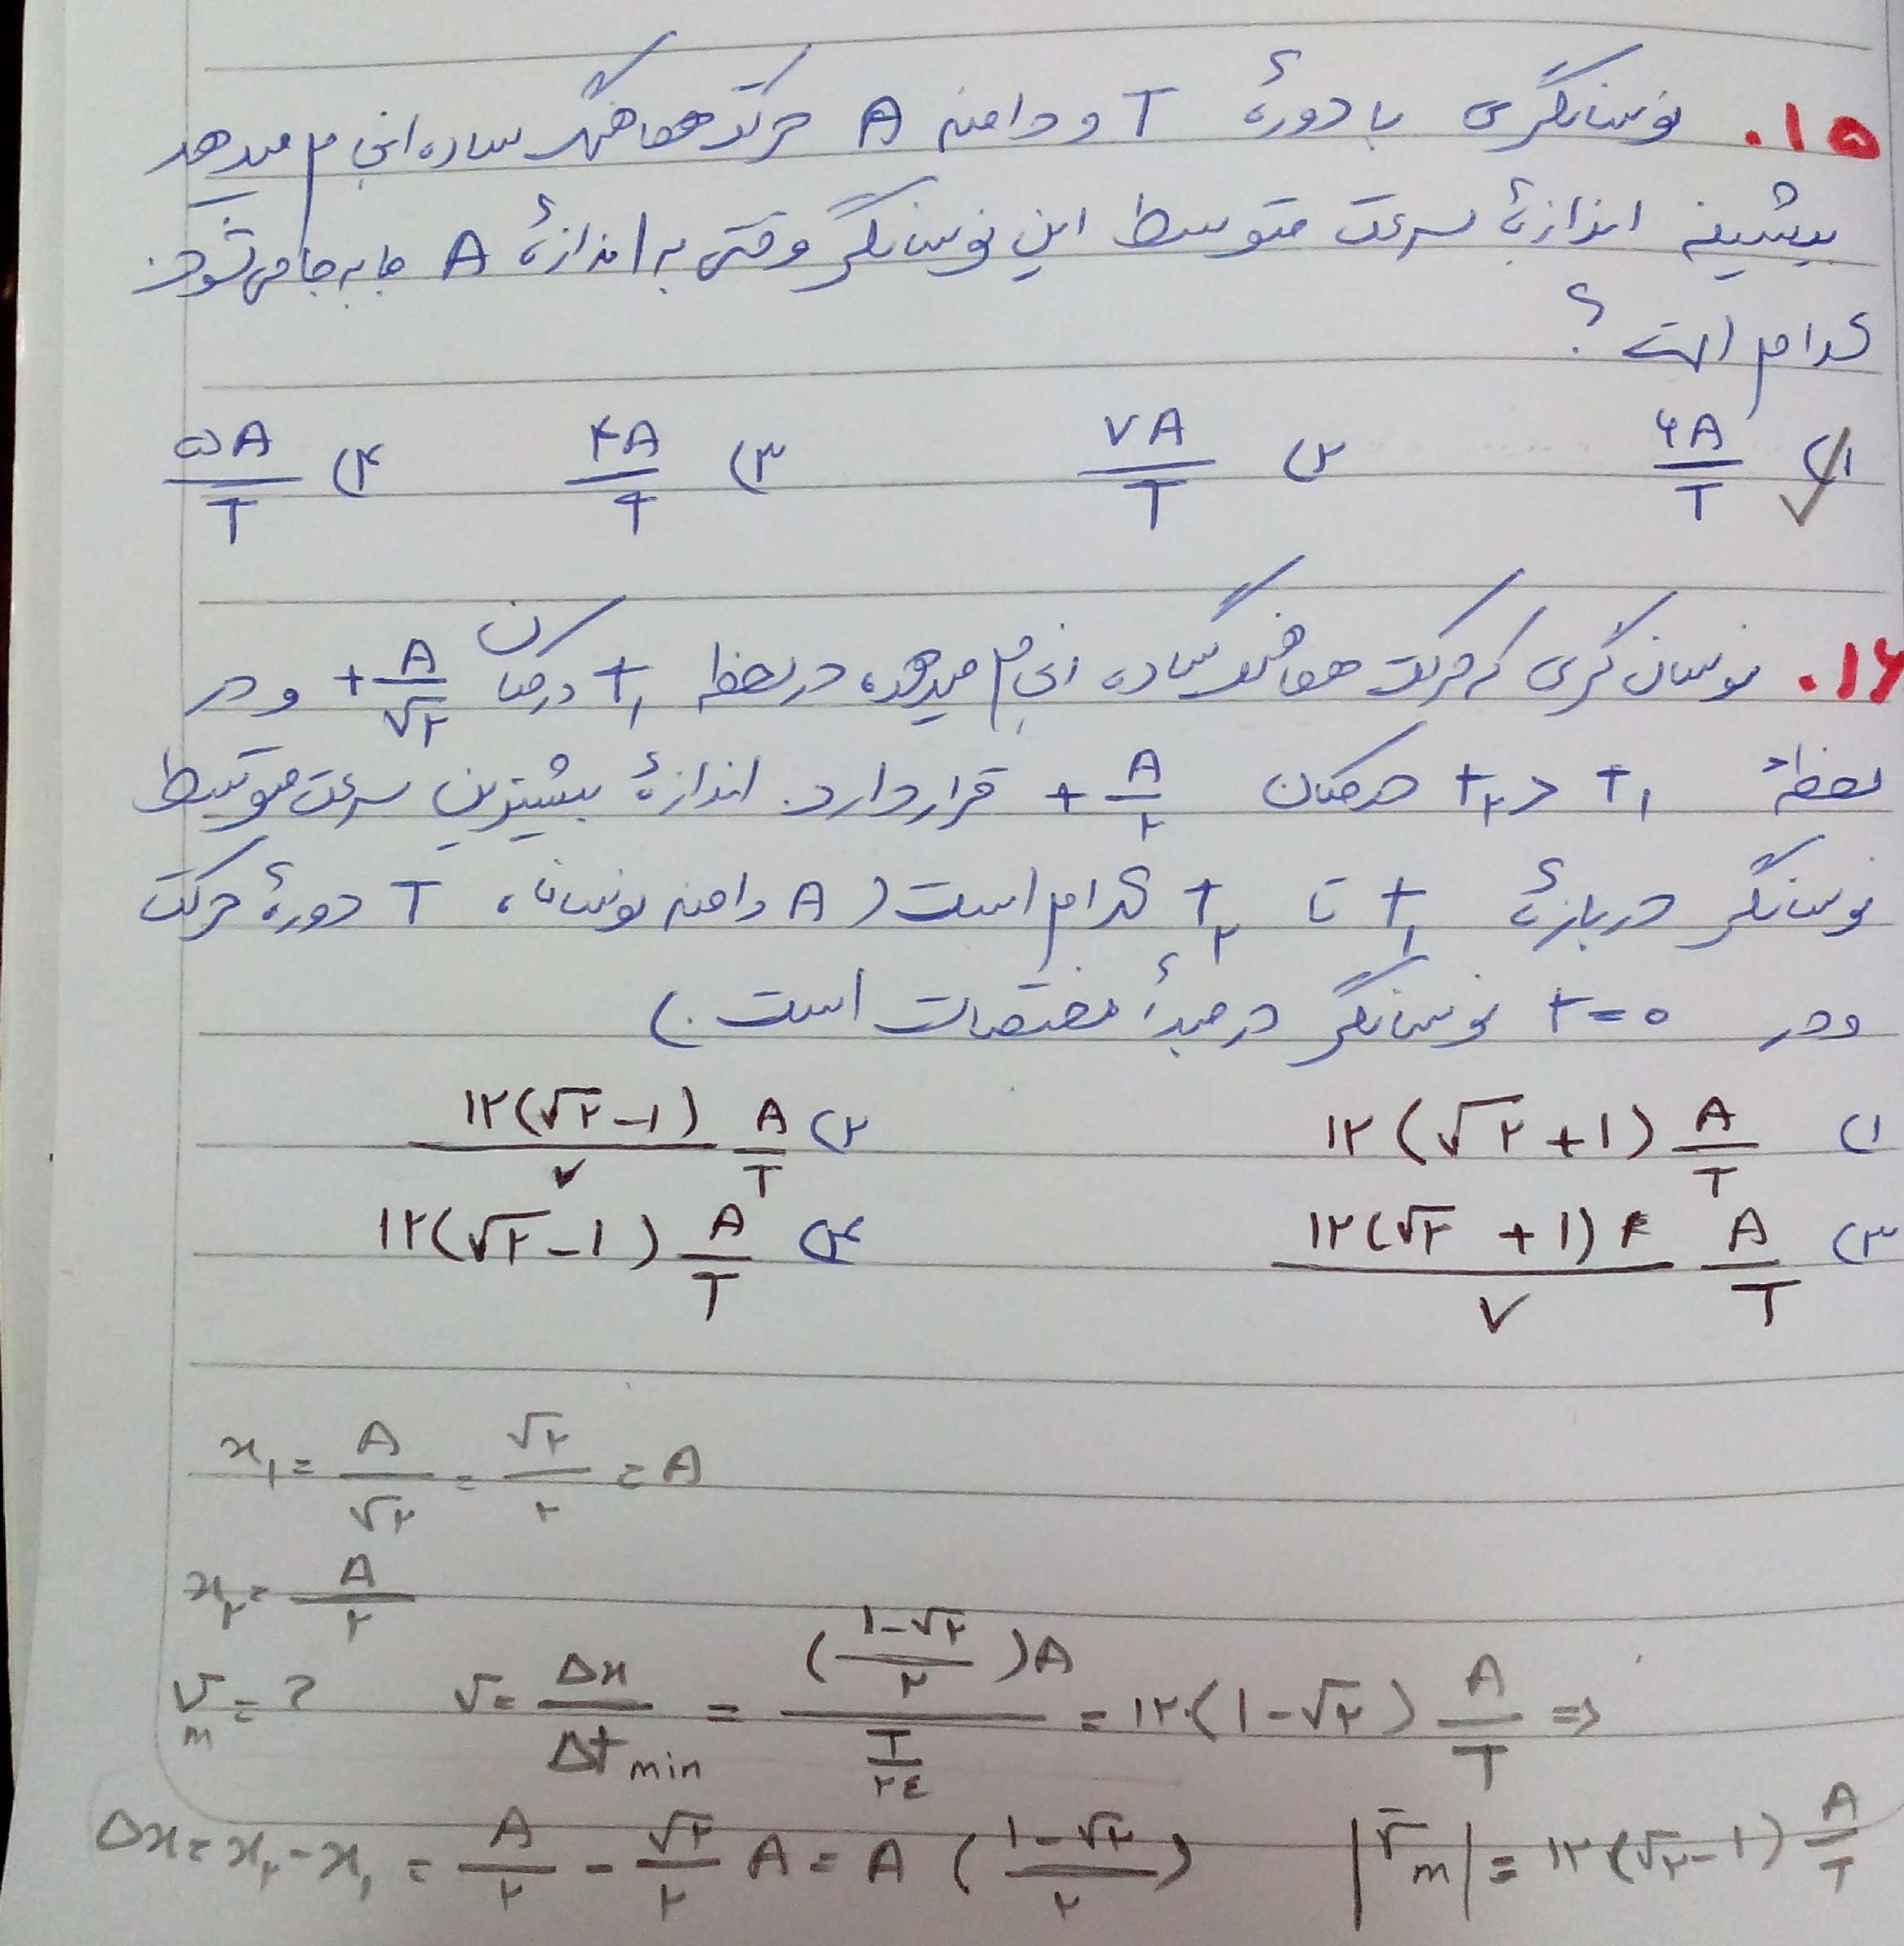 ۱۵. نوسانگری با دورهٔ T و دامنه A حرکت هماهنگ ساده انجام میدهد
بیشینه اندازهٔ سرعت متوسط این نوسانگر وقتی به اندازهٔ A جابه جا می شود.
کدام است؟
۱) ۶A/T ۲) ۷A/T ۳) ۴A/T ۴) ۵A/T
۱۶. نوسان گری که حرکت هماهنگ ساده انجام میدهد، در لحظه t₁ در مکان +A/√۲ و در
لحظهٔ t₂ > t₁ در مکان +A/۲ قرار دارد. اندازهٔ بیشترین سرعت متوسط
نوسانگر در بازهٔ t₁ تا t₂ کدام است (A دامنه نوسان، T دورهٔ حرکت
و در t=۰ نوسانگر در مبدأ مختصات است.)
۱) ۱۲(√۲+۱) A/T ۲) ۱۲(√۲-۱)/۷ A/T
۳) ۱۲(√۲+۱)/۷ A/T ۴) ۱۲(√۲-۱) A/T
x₁ = A/√۲ = √۲/۲ = A
x₂ = A/۲
v_m = ? v = Δx/Δt min = ((۱-√۲)/۲)A / (T/۲٤) = ۱۲(۱-√۲) A/T ⇒
Δx = x₂ - x₁ = A/۲ - √۲/۲ A = A((۱-√۲)/۲) |v̄_m| = ۱۲(√۲-۱) A/T